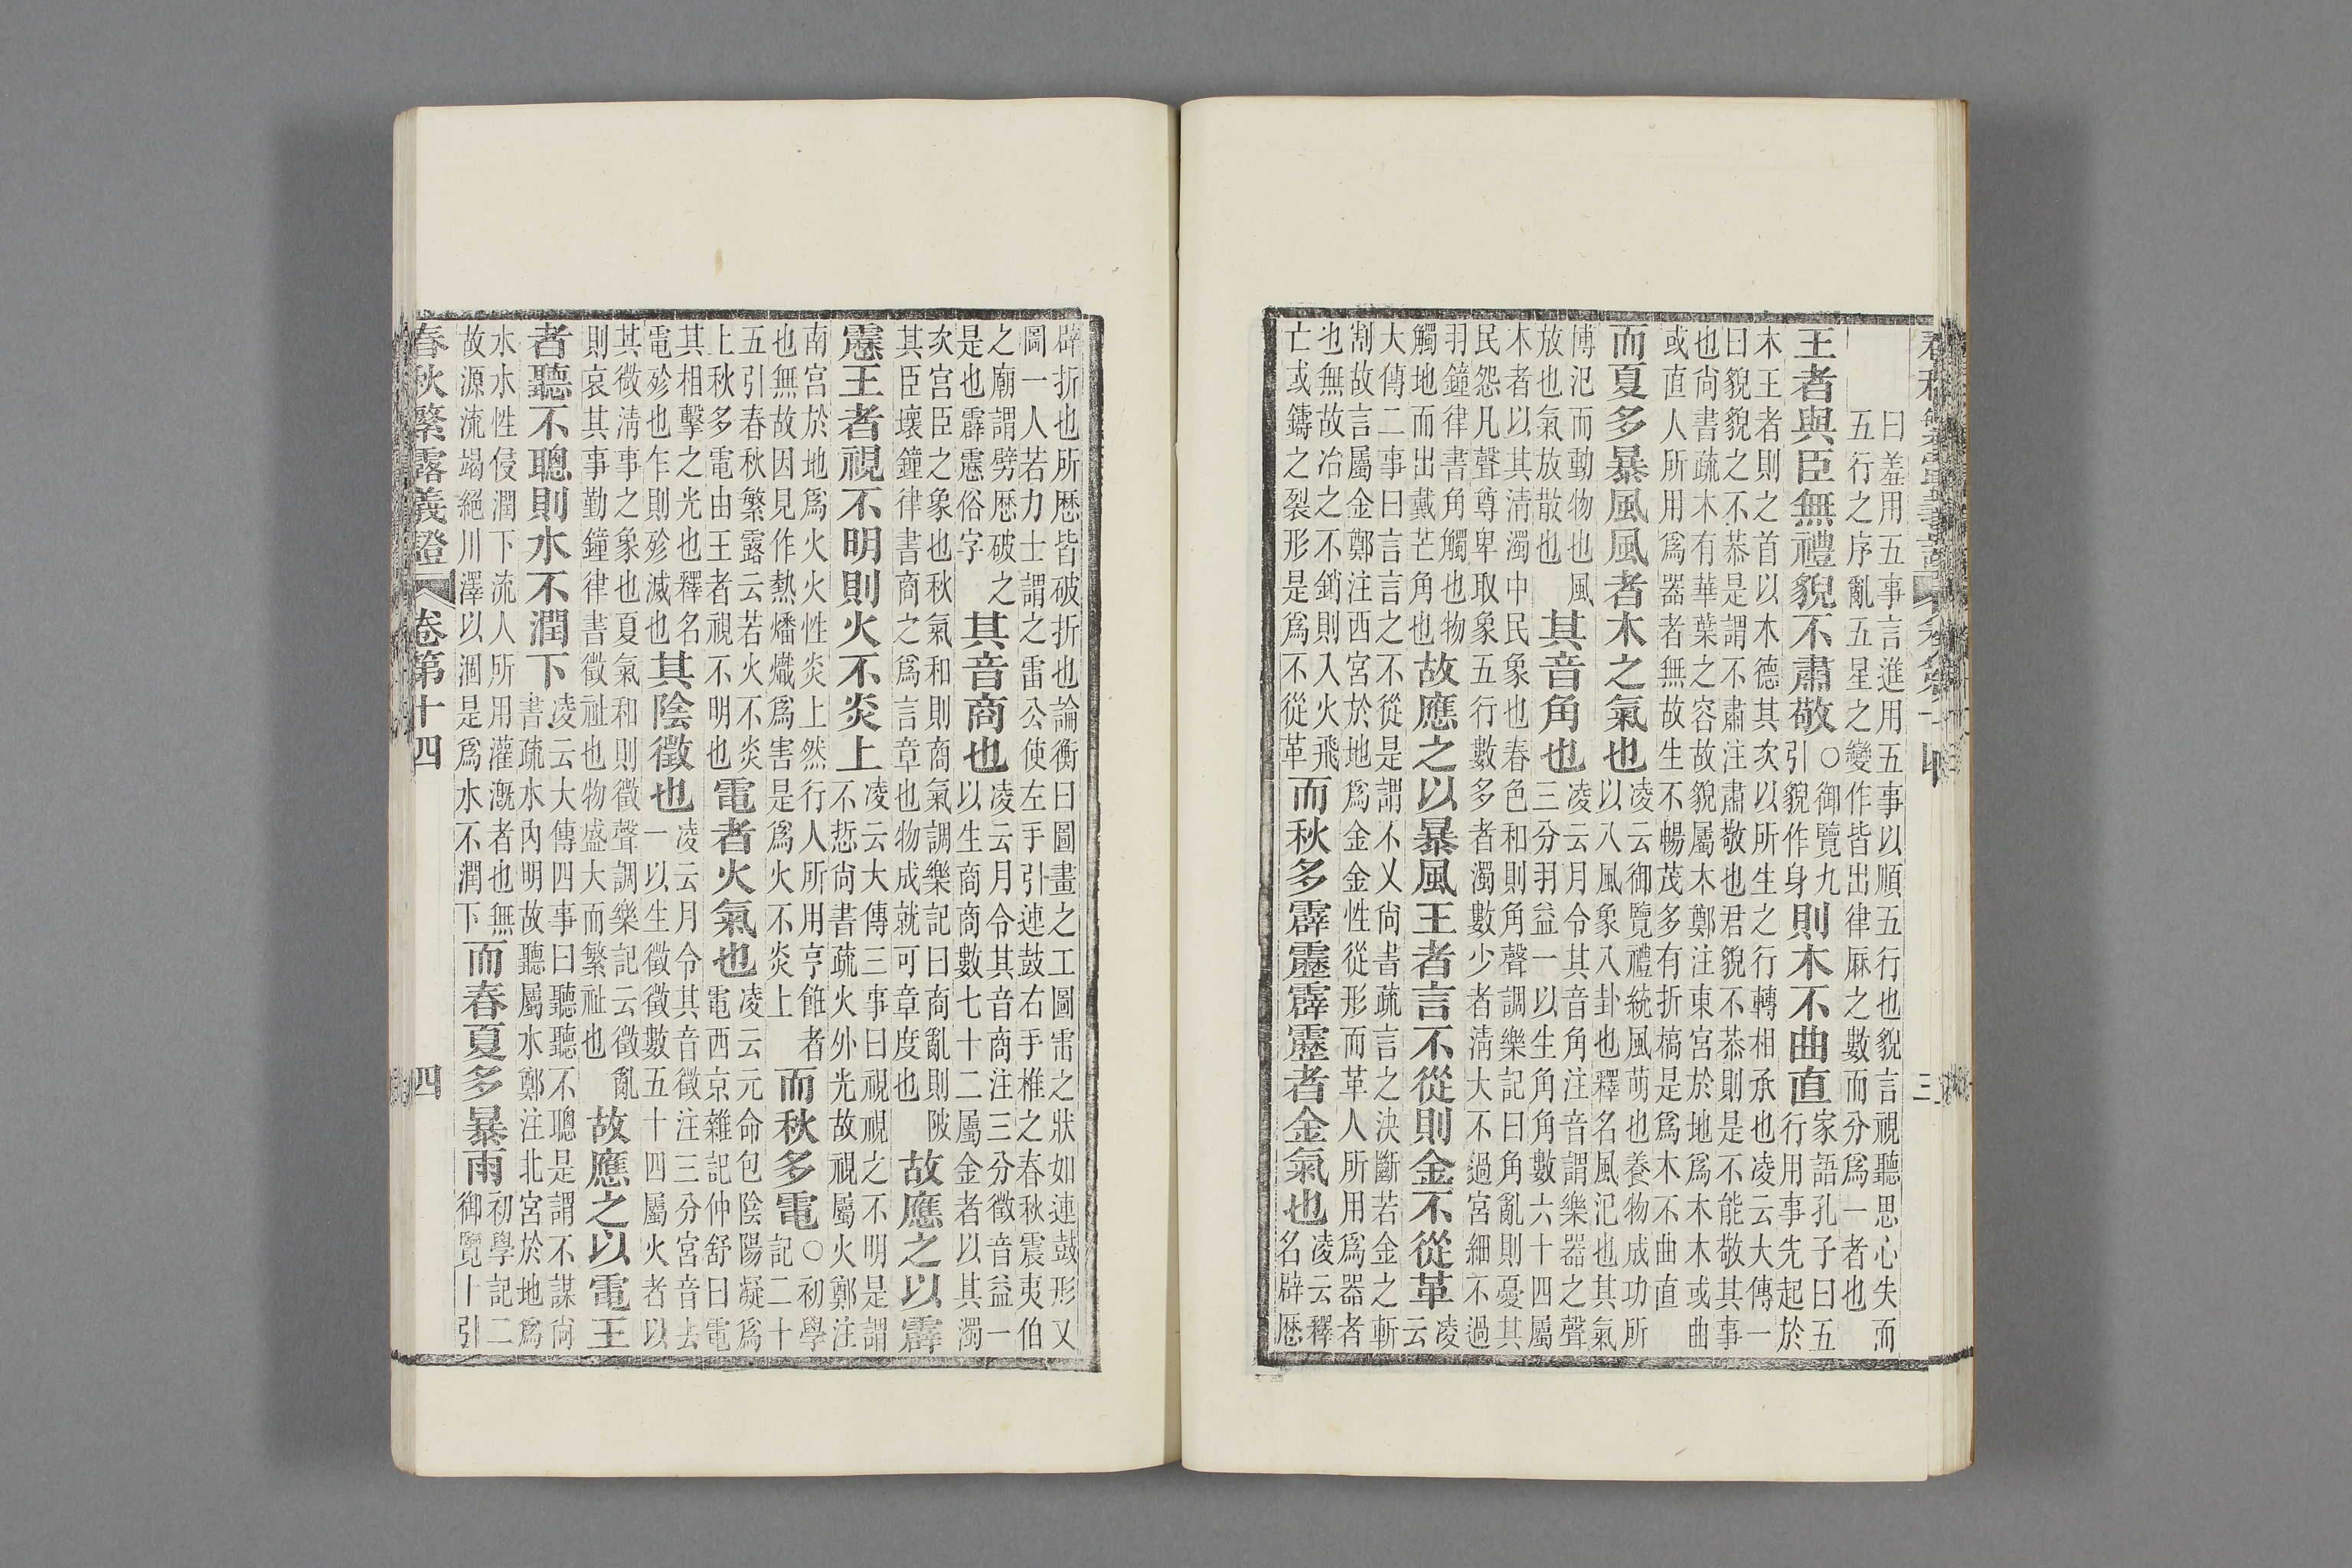 春秋
三
曰羞用五事言進用五事以順五行也貌言視聽思心失而
五行之序亂五星之變作皆出律厤之數而分爲一者也
王者與臣無禮貌不肅敬○御覽九引貌作身則木不曲直家語孔子曰五行用事先起於
木王者則之首以木德其次以所生之行轉相承也凌云大傳一
曰貌貌之不恭是謂不肅注肅敬也君貌不恭則是不能敬其事
也尚書疏木有華葉之容故貌屬木鄭注東宮於地爲木木或曲
或直人所用爲器者無故生不暢茂多有折槁是爲木不曲直
而夏多暴風風者木之氣也凌云御覽禮統風萌也養物成功所以八風象八卦也釋名風氾也其氣
博氾而動物也風放也氣放散也其音角也凌云月令其音角注音謂樂器之聲三分羽益一以生角角數六十四屬
木者以其清濁中民象也春色和則角聲調樂記曰角亂則憂其
民怨凡聲尊卑取象五行數多者濁數少者清大不過宮細不過
羽鐘律書角觸也物觸地而出戴芒角也故應之以暴風王者言不從則金不從革凌云
大傳二事曰言言之不從是謂不乂尚書疏言之決斷若金之斬
割故言屬金鄭注西宮於地爲金金性從形而革人所用爲器者
也無故冶之不銷則入火飛亡或鑄之裂形是爲不從革而秋多霹靂霹靂者金氣也凌云釋名辟歷
辟折也所歷皆破折也論衡曰圖畫之工圖雷之狀如連鼓形又
圖一人若力士謂之雷公使左手引連鼓右手椎之春秋震夷伯
之廟謂劈歷破之是也霹靂俗字其音商也凌云月令其音商注三分徵音益一以生商商數七十二屬金者以其濁
次宮臣之象也秋氣和則商氣調樂記曰商亂則陂其臣壞鐘律書商之爲言章也物成就可章度也故應之以霹
靂王者視不明則火不炎上凌云大傳三事曰視視之不明是謂不悊尚書疏火外光故視屬火鄭注
南宮於地爲火火性炎上然行人所用亨飪者也無故因見作熱燔熾爲害是爲火不炎上而秋多電○初學記二十
五引春秋繁露云若火不炎上秋多電由王者視不明也電者火氣也凌云元命包陰陽凝爲電西京雜記仲舒曰電
其相擊之光也釋名電殄也乍則殄滅也其陰徵也凌云月令其音徵注三分宮音去一以生徵徵數五十四屬火者以
其徵清事之象也夏氣和則徵聲調樂記云徵亂則哀其事勤鐘律書徵祉也物盛大而繁祉也故應之以電王
者聽不聰則水不潤下凌云大傳四事曰聽聽不聰是謂不謀尚書疏水內明故聽屬水鄭注北宮於地爲
水水性侵潤下流人所用灌溉者也無故源流竭絕川澤以涸是爲水不潤下而春夏多暴雨初學記二御覽十引
春秋繁露義證 卷第十四 四